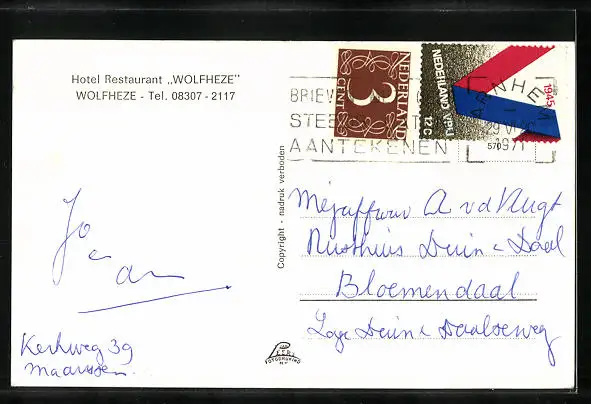 Hotel Restaurant „WOLFHEZE”
WOLFHEZE - Tel. 08307 - 2117
NEDERLAND
3
CENT
NEDERLAND VRIJ
12 C
1945
570
BRIEV
STEE
AANTEKENEN
ARNHEM
29 VI
1971
Copyright - nadruk verboden
Jo
en
an
Kerkweg 39
Maarssen
Mejuffrouw A v d Vlugt
Rusthuis Duin & Daal
Bloemendaal
Lage Duin & Daalseweg